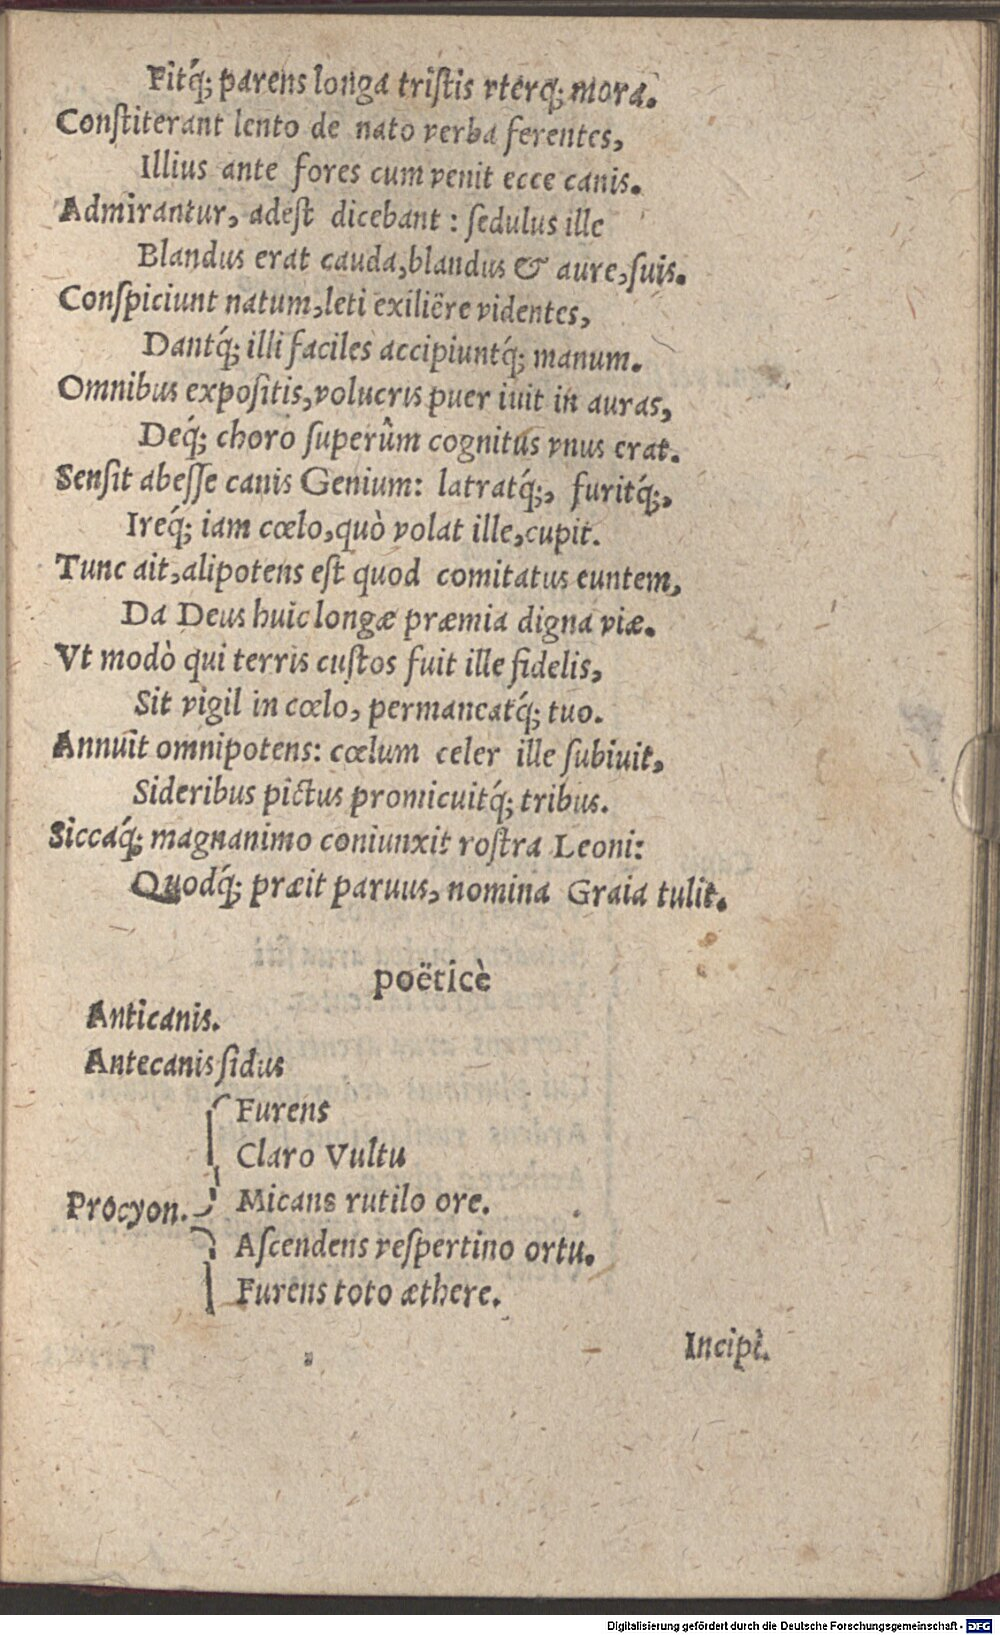 Fitq́; parens longa triſtis vterq; mora.
Conſtiterant lento de nato verba ferentes,
Illius ante fores cum venit ecce canis.
Admirantur, adeſt dicebant: ſedulus ille
Blandus erat cauda, blandus & aure, ſuis.
Conſpiciunt natum, leti exiliëre videntes,
Dantq́; illi faciles accipiuntq́; manum.
Omnibus expoſitis, volucris puer iuit in auras,
Deq́; choro ſuperûm cognitus vnus erat.
Senſit abeſſe canis Genium: latratq́;, furitq́;,
Ireq́; iam cœlo, quò volat ille, cupit.
Tunc ait, alipotens eſt quod comitatus euntem,
Da Deus huic longæ præmia digna viæ.
Vt modò qui terris cuſtos fuit ille fidelis,
Sit vigil in cœlo, permaneatq́; tuo.
Annuit omnipotens: cœlum celer ille ſubiuit,
Sideribus pictus promicuitq́; tribus.
Siccaq́; magnanimo coniunxit roſtra Leoni:
Quodq́; præit paruus, nomina Graia tulit.
poëticè
Anticanis.
Antecanis ſidus
Furens
Claro Vultu
Procyon. Micans rutilo ore.
Aſcendens veſpertino ortu.
Furens toto æthere.
Incipi.
Digitalisierung gefördert durch die Deutsche Forschungsgemeinschaft - DFG